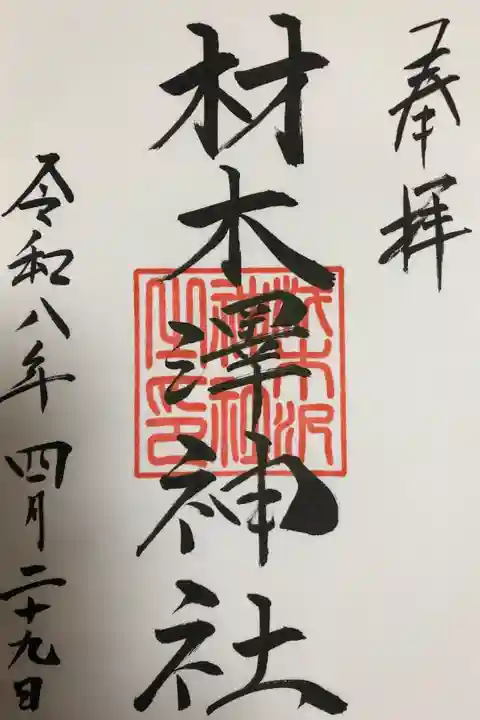 奉拝
材木澤神社
材木沢
神社
之印
令和八年四月二十九日